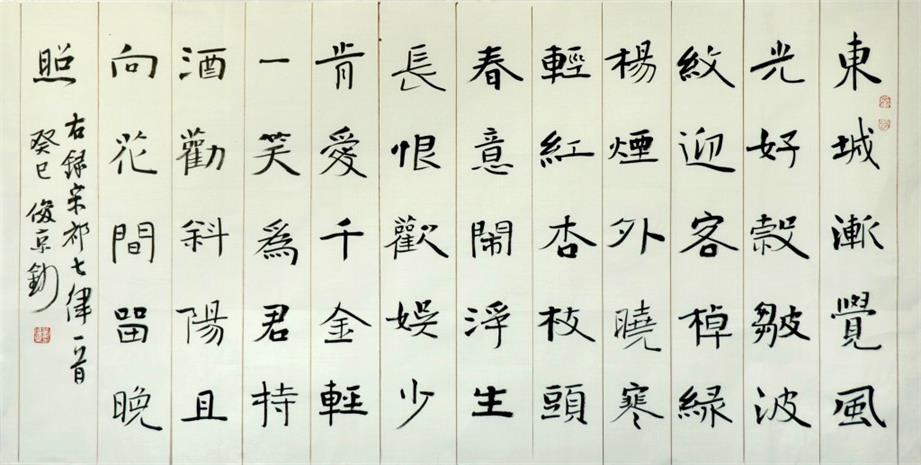 東城漸覺風
光好穀皺波
紋迎客棹綠
楊煙外曉寒
輕紅杏枝頭
春意鬧浮生
長恨歡娛少
肯愛千金輕
一笑爲君持
酒勸斜陽且
向花間留晚
照
右録宋祁七律一首
癸巳俊京